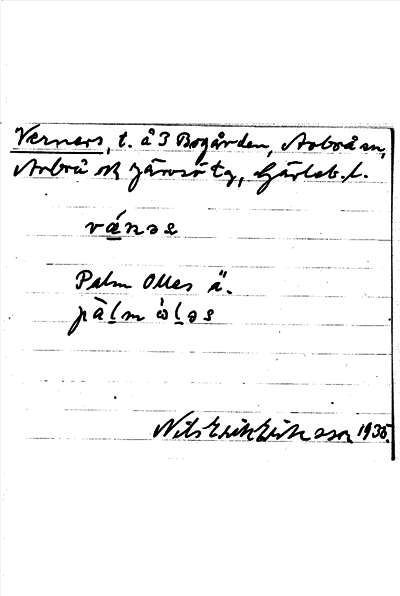 Verners, t. å 3 Bogården, Arbrå sn,
Arbrå ok Järvsö tg, Gävleb. l.
vánəs
Palm Olles ä.
pàlm òləs
Nils Erik Eriksson 1935.